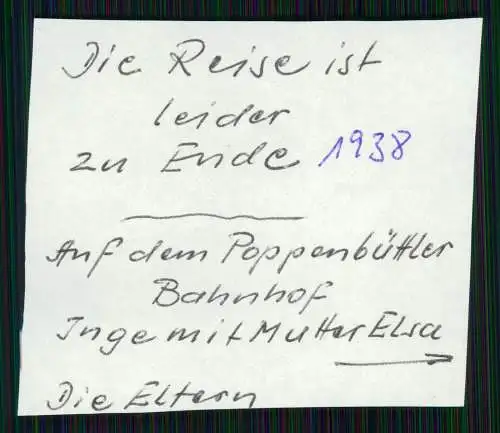 Die Reise ist
leider
zu Ende 1938
Auf dem Poppenbüttler
Bahnhof
Inge mit Mutter Elsa
Die Eltern